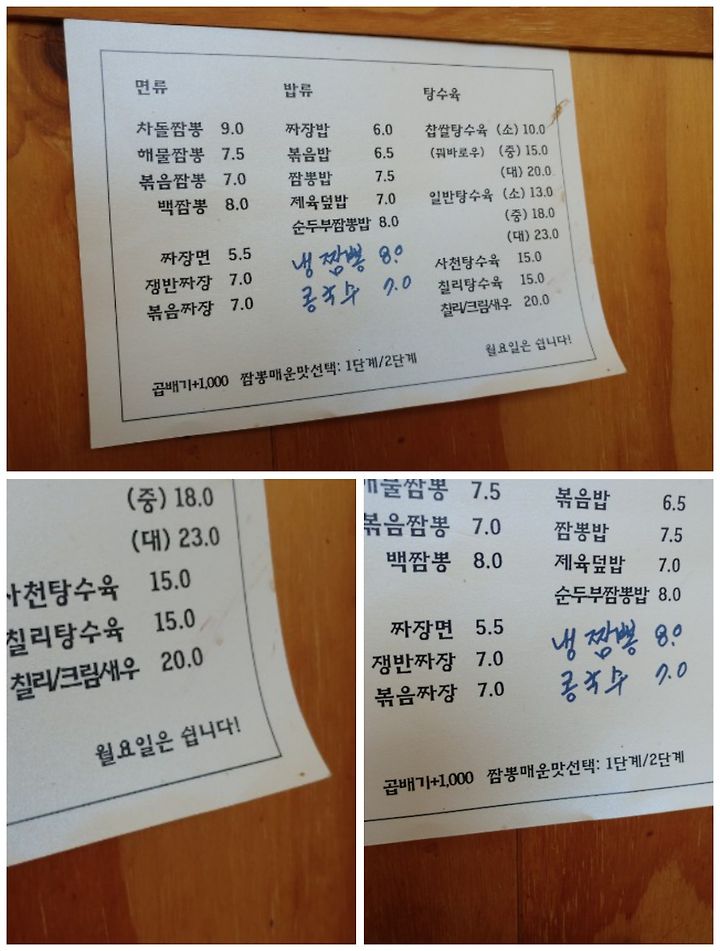 면류
차돌짬뽕 9.0
해물짬뽕 7.5
볶음짬뽕 7.0
백짬뽕 8.0
짜장면 5.5
쟁반짜장 7.0
볶음짜장 7.0
밥류
짜장밥 6.0
볶음밥 6.5
짬뽕밥 7.5
제육덮밥 7.0
순두부짬뽕밥 8.0
냉짬뽕 8.0
콩국수 7.0
탕수육
찹쌀탕수육 (소) 10.0
(꿔바로우) (중) 15.0
(대) 20.0
일반탕수육 (소) 13.0
(중) 18.0
(대) 23.0
사천탕수육 15.0
칠리탕수육 15.0
칠리/크림새우 20.0
곱배기+1,000 짬뽕매운맛선택: 1단계/2단계
월요일은 쉽니다!
(중) 18.0
(대) 23.0
사천탕수육 15.0
칠리탕수육 15.0
칠리/크림새우 20.0
월요일은 쉽니다!
해물짬뽕 7.5
볶음짬뽕 7.0
백짬뽕 8.0
짜장면 5.5
쟁반짜장 7.0
볶음짜장 7.0
볶음밥 6.5
짬뽕밥 7.5
제육덮밥 7.0
순두부짬뽕밥 8.0
냉짬뽕 8.0
콩국수 7.0
곱배기+1,000 짬뽕매운맛선택: 1단계/2단계